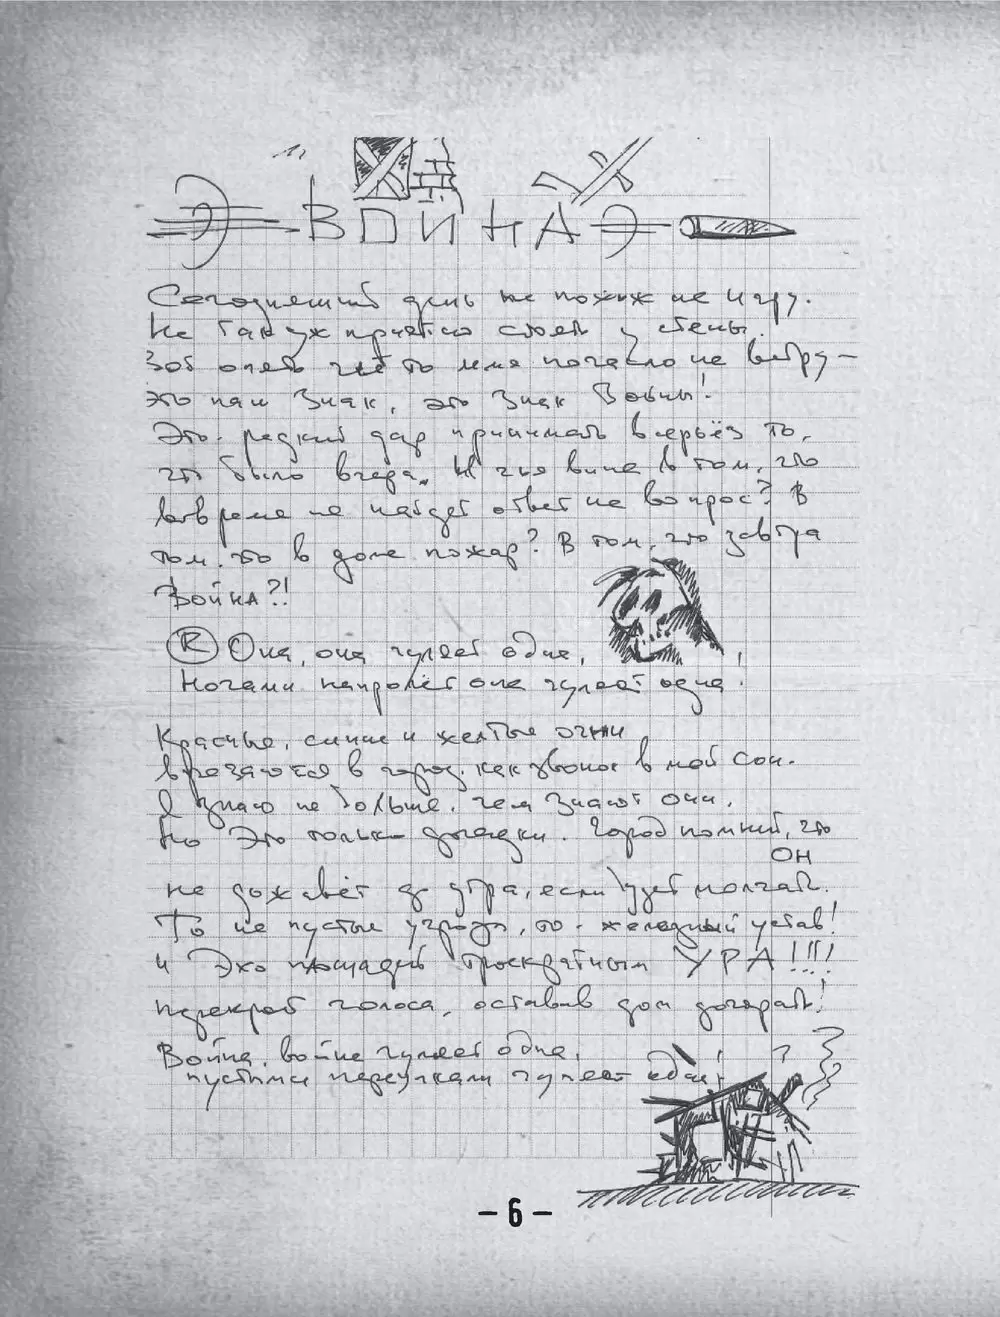 ВОЙНА
Сегодняшний день не похож на игру.
Не так уж приятно стоять у стены.
Вот опять где то мина погасло на ветру —
это наш Знак, это Знак Войны!
Это редкий дар принимать всерьёз то,
что было вчера. И чья вина в том, что
время не найдет ответ на вопрос? В
том, что в доме пожар? В том, что завтра
Война?!
Ⓡ Она, она гуляет одна,
Ночами напролёт она гуляет одна!
Красные, синие и желтые огни
врезаются в город, как звонок в мой сон.
Я знаю не больше, чем знают они,
Но это только догадки. Город помнит, что
он
не доживёт до утра, если будет молчать.
То не пустые угрозы, то - железный устав!
И Эхо площадей троекратным УРА!!!!
перекроет голоса, оставив дом догорать!
Война, война гуляет одна,
пустыми переулками гуляет одна!
– 6 –